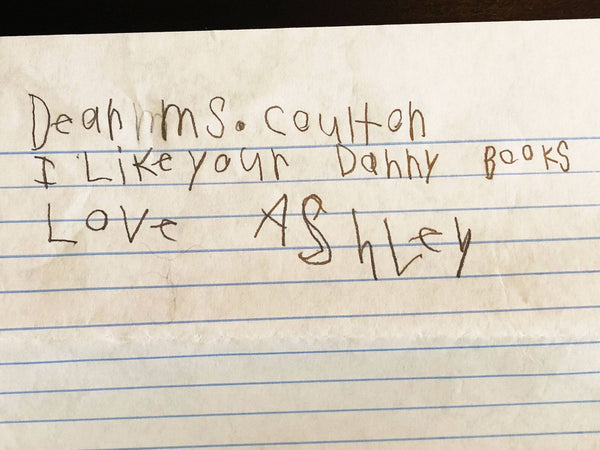 Dear ms. coulton
I Like your Danny BooKS
Love AShLey